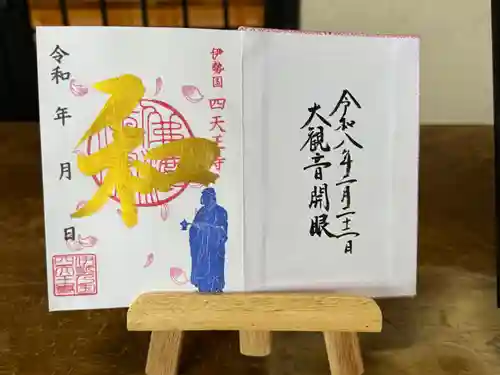 伊勢国 四天王寺
和
令和 年 月 日
令和八年二月二十二日
大観音開眼